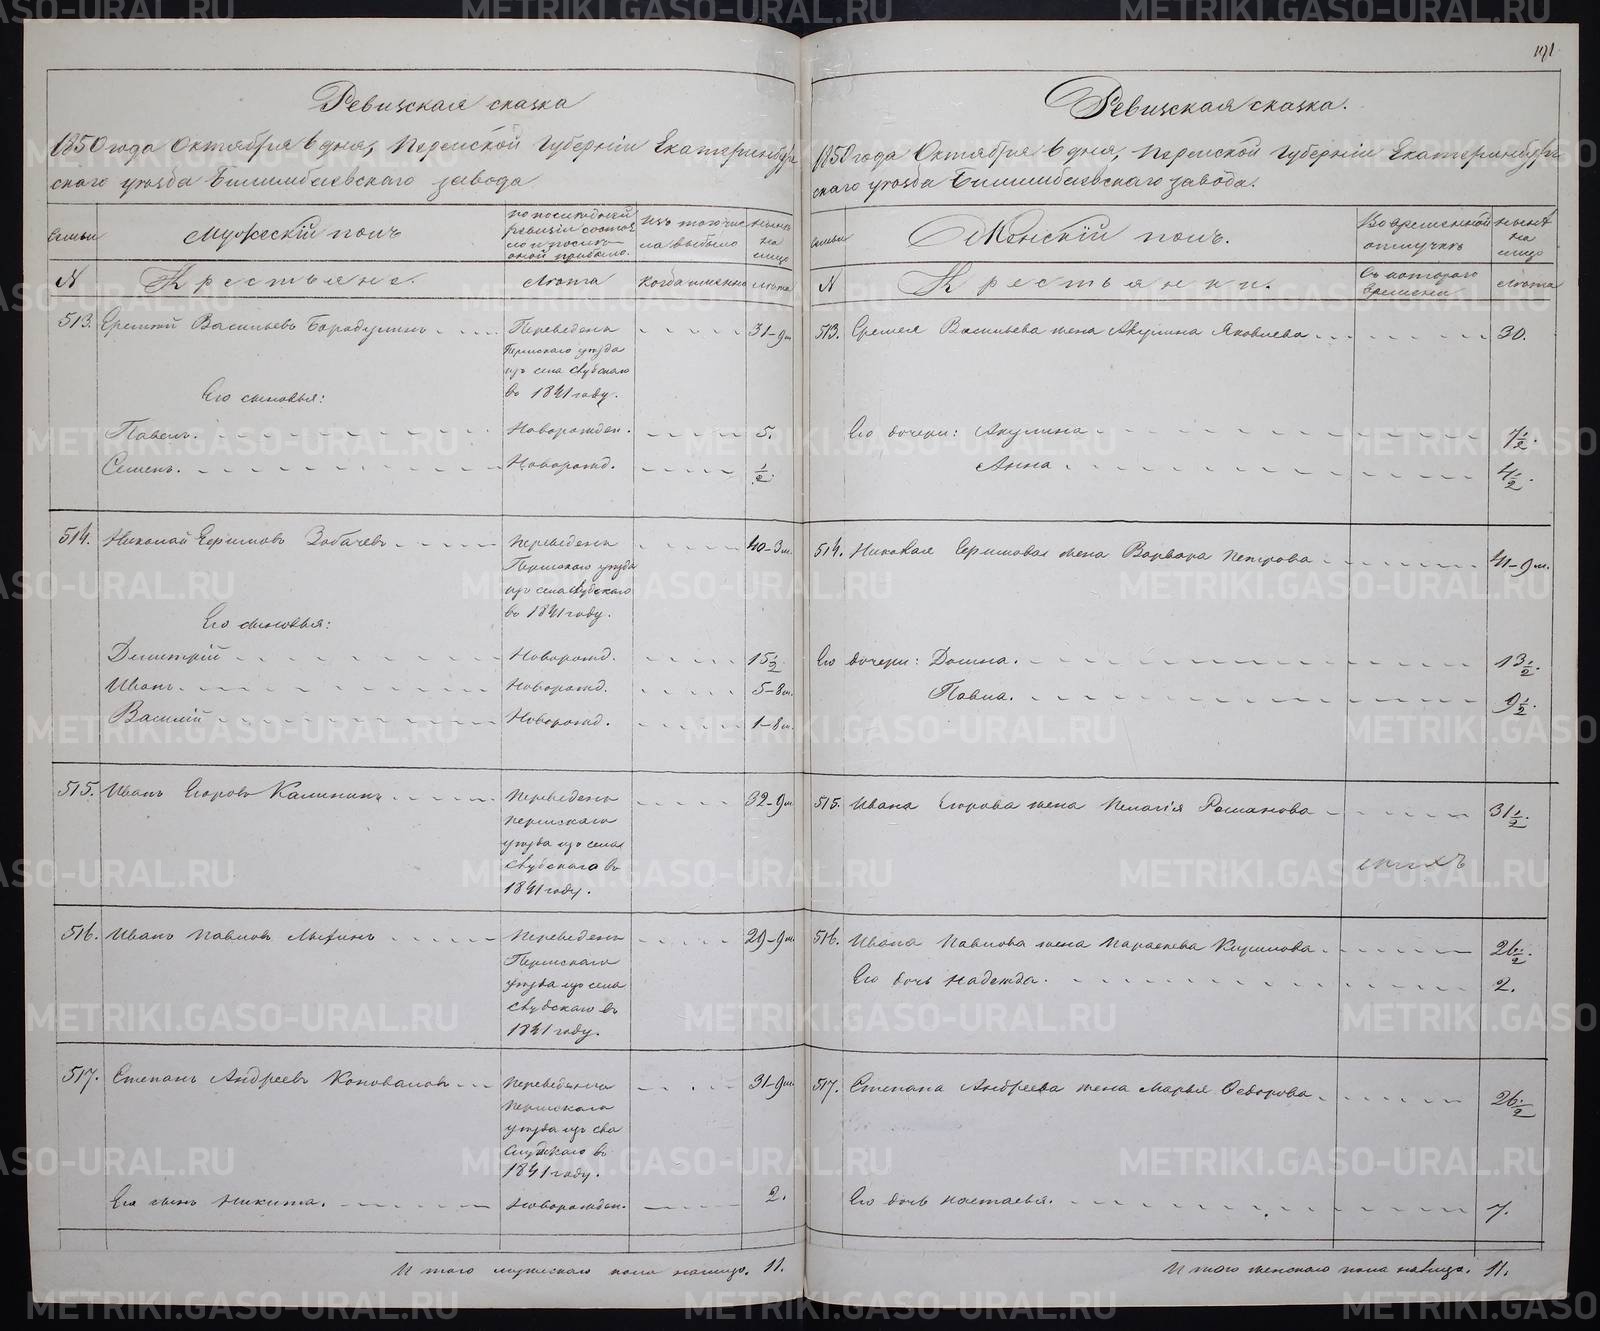 171
Ревизская сказка
1850 года Октября 6 дня, Пермской Губерніи Екатеринбург-
скаго уѣзда Билимбаевскаго завода
Семьи
Мужескій полъ
по последней ревизіи состояло и после оной прибыло.
Изъ того числа выбыло
Нынѣ на лицо
N
Крестьяне.
Лѣта
Когда именно
Лѣта
513. Еремѣй Васильевъ Бородулинъ
Переведенъ
31-9 м
Пермскаго уѣзда
изъ села
въ 1841 году.
Его сыновья:
Павелъ.
Новорожден.
5.
Семенъ.
Новорожд.
½
514. Николай Ефимовъ Зобачевъ
Переведенъ
40-3 м.
Пермскаго уѣзда
изъ села
въ 1841 году.
Его сыновья:
Димитрій
Новорожд.
15½
Иванъ.
Новорожд.
5-8 м.
Василій
Новорожд.
1-8 м.
515. Иванъ Егоровъ Калининъ
Переведенъ
32-9 м.
Пермскаго
уѣзда изъ села
въ
1841 году.
516. Иванъ Павловъ
Переведенъ
29-9 м.
Пермскаго
уѣзда изъ села
въ
1841 году.
517. Степанъ Андреевъ Коноваловъ
31-9 м.
Пермскаго
уѣзда изъ
въ
1841 году.
Его сынъ Никита.
Новорожден.
2.
И того мужескаго пола налицо. 11.
Ревизская сказка.
1850 года Октября 6 дня, Пермской Губерніи Екатеринбург-
скаго уѣзда Билимбаевскаго завода.
Семьи
Женскій полъ.
Во временной отлучкѣ
Нынѣ на лицо
N
Крестьянки.
Съ котораго времени
Лѣта
513. Еремея Васильева жена Акулина Яковлева
30.
Его дочери: Акулина
7½.
Анна
4½.
514. Николая Ефимова жена Варвара Петрова
41-9 м.
Его дочери: Домна.
13½.
Павла.
9½.
515. Ивана Егорова жена Пелагія Романова
31½.
516. Ивана Павлова жена Параскева Кирилова
26½.
Его дочь Надежда.
2.
517. Степана Андреева жена Марья Федорова
26½
Его дочь Настасья.
7.
И того женскаго пола налицо. 11.
METRIKI.GASO-URAL.RU